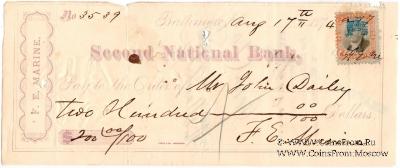 No 3539 Baltimore, Aug 17th 1874
Second National Bank,
Pay to the Order of Mr John Dailey
Two Hundred 00/100 Dollars
$ 200 00/100 F. E. Marine
F. E. MARINE.
http://CoinsMoscow.ru
www.CoinsFromMoscow.com